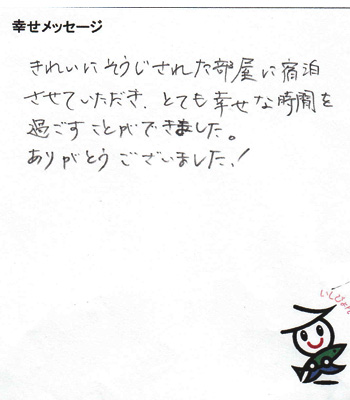 幸せメッセージ
きれいにそうじされた部屋に宿泊
させていただき、とても幸せな時間を
過ごすことができました。
ありがとうございました!
いしぴょん